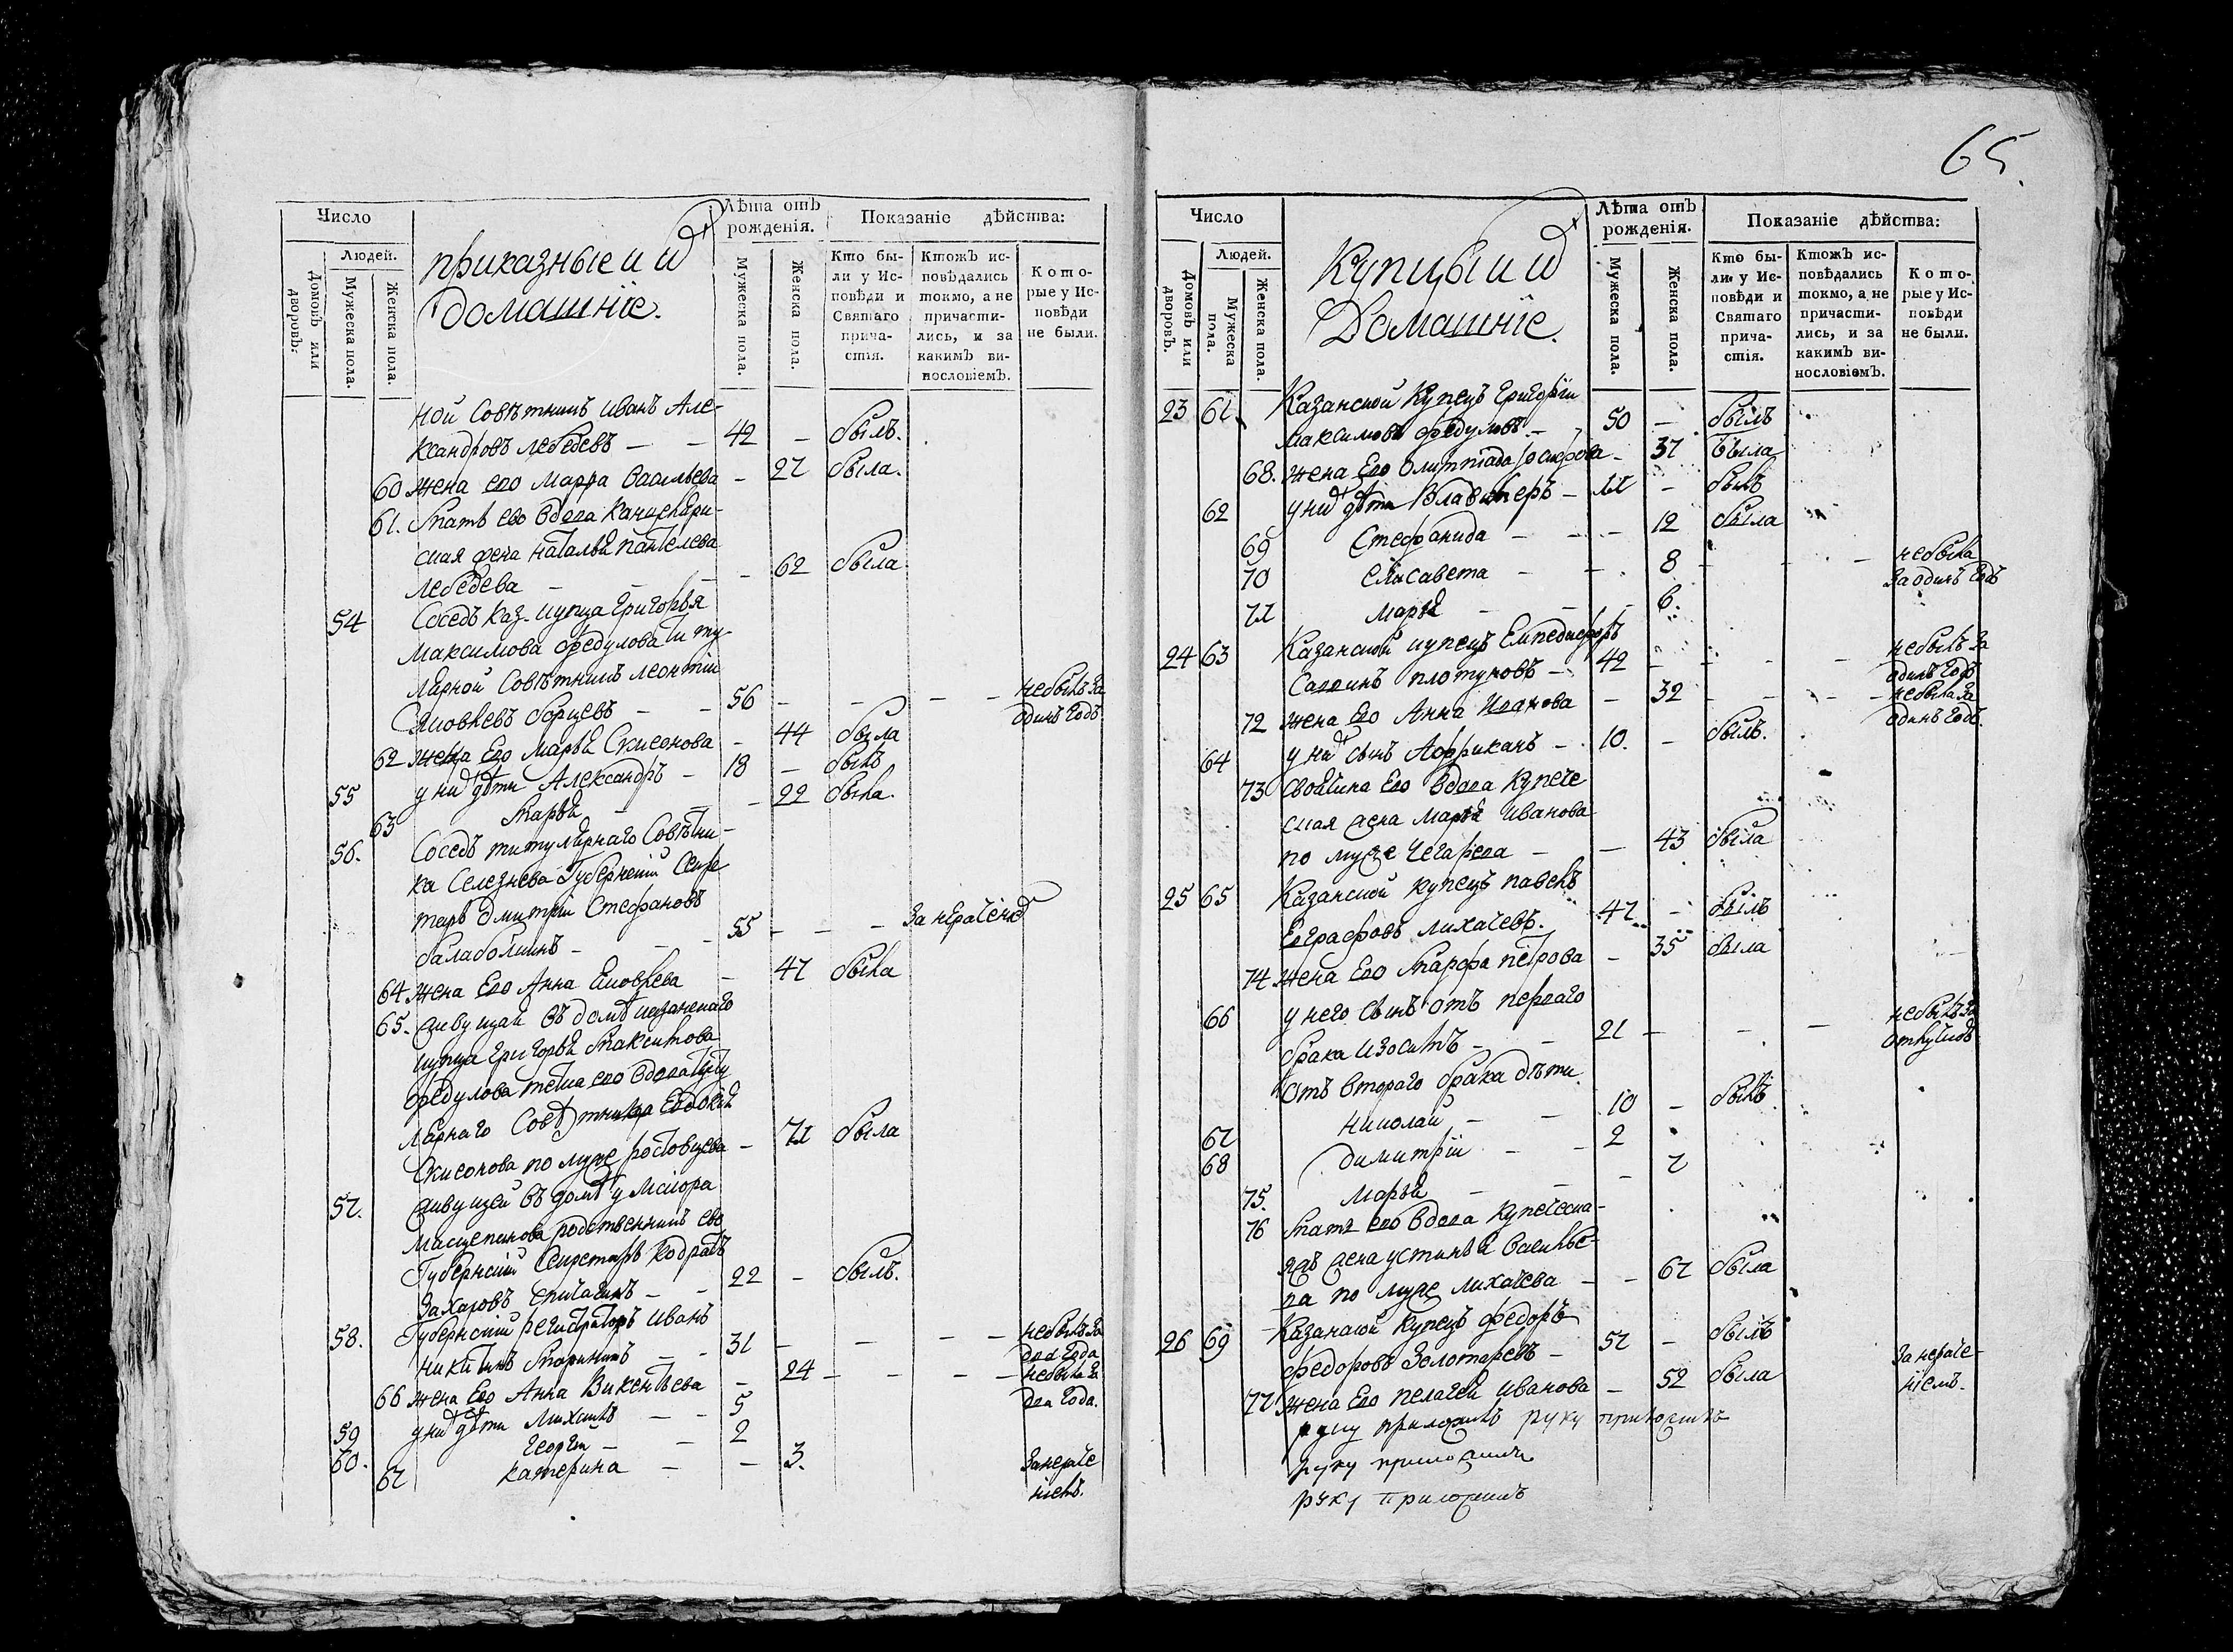 65.
Число
Людей.
Домовъ или дворовъ.
Мужеска пола.
Женска пола.
приказные и ихъ
домашніе.
Лѣта отъ рожденія.
Мужеска пола.
Женска пола.
Показаніе дѣйства:
Кто бы-
ли у Ис-
повѣди и
Святаго
прича-
стія.
Ктожъ ис-
повѣдались
токмо, а не
причасти-
лись, и за
какимъ ви-
нословіемъ.
Кото-
рые у Ис-
повѣди
не были.
ной Совѣтникъ Иванъ Але-
ксандровъ Лебедевъ — — 42 — былъ.
60 жена его Марѳа Васильева — 27 была.
61. Мать его вдова Канцеляри-
ская жена Наталья Пантелева
Лебедева — — — 62 была
54 Соседъ Каз. купца Григорья
Максимова Федулова титу-
лярной Совѣтникъ Леонтiй
Яковлевъ Борцевъ — — 56 — — — — небылъ за
одинъ годъ
62 жена Его Марья Симеонова — 44 была
55 у нихъ дѣти Александръ — 18 — былъ
63 Марья — — — 22 была.
56. Соседъ титулярнаго Совѣтни-
ка Селезнева Губернскiй Секре
тарь Дмитрiй Стефановъ
Балаболкинъ — — — 55 — — — За нерачениемъ
64 жена Его Анна Яковлева — 47 была
65. живущая въ домѣ казанскаго
купца Григорья Максимова
Федулова теща его вдова титу
лярнаго Совѣтника Евдокiя
Симеонова по муже Ростовцева — 71 была
57. живущей въ домѣ у Маiора
родственникъ его
Губернскiй Секретарь Кодратъ
Захаровъ — — 22 — былъ.
58. Губернскiй регистраторъ Иванъ
Никитинъ — — 31 — — — — небылъ за
два года
66 жена Его Анна Викентьева — 24 — — — — небыла за
два года.
59 у нихъ дѣти Михаилъ — — 5
60. Георгiй — — 2
67 Катерина — — 3. За нераче
нiемъ.
Число
Людей.
Домовъ или дворовъ.
Мужеска пола.
Женска пола.
Купцы и ихъ
Домашніе.
Лѣта отъ рожденія.
Мужеска пола.
Женска пола.
Показаніе дѣйства:
Кто бы-
ли у Ис-
повѣди и
Святаго
прича-
стія.
Ктожъ ис-
повѣдались
токмо, а не
причасти-
лись, и за
какимъ ви-
нословіемъ.
Кото-
рые у Ис-
повѣди
не были.
23 61 Казанской Купецъ Григорiй
Максимовъ Федуловъ — 50 — былъ
68. жена Его Олимпiада — 37 была
62 у нихъ дѣти Владимеръ — 11 — былъ
69 Стефанида — — — 12 была
70 Елисавета — — 8 — — — небыла
за одинъ годъ
71 Марья — — — 6.
24 63 Казанской купецъ Елпедифоръ
Саввинъ Плотуновъ — 42 — — — — небылъ за
одинъ годъ
72 жена Его Анна Иванова — 32 — — — — небыла за
одинъ годъ.
64 у нихъ сынъ Аффриканъ — 10. — былъ.
73 Свойтина Его вдова Купече
ская жена Марья Иванова
по муже — — 43 была
25 65 Казанской купецъ Павелъ
Евграфовъ Лихачевъ. 47 — былъ
74 жена Его Марфа Петрова — 35 была
66 у него сынъ отъ перваго
брака Изосимъ — — 21 — — — небылъ за
отлучкою
Отъ втораго брака дѣти
67 Николай — — 10 — былъ
68 Димитрiй — — 2
75. Марья — — — 7
76 Мать его вдова купеческа-
яжъ жена Устинья Василье-
ва по муже Лихачева — — 67 была
26 69 Казанской Купецъ Федоръ
Федоровъ Золотаревъ — 57 — былъ
77 жена Его Пелагея Иванова — 52 была За нераче-
нiемъ.
руку приложилъ руку приложилъ
руку приложилъ
руку приложилъ